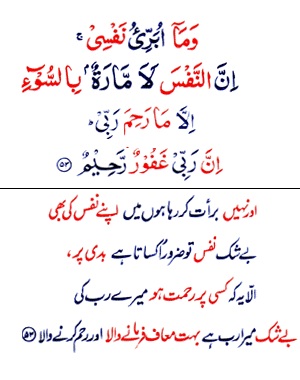 وَمَآ اُبَرِّئُ نَفْسِیْ ۚ
اِنَّ النَّفْسَ لَاَ مَّارَةٌۢ بِالسُّوْٓءِ
اِلَّا مَارَحِمَ رَبِّیْ ؕ
اِنَّ رَبِّیْ غَفُوْرٌ رَّحِیْمٌ ﴿۵۳﴾
اور نہیں برأت کر رہا ہوں میں اپنے نفس کی بھی
بے شک نفس تو ضرور اُکساتا ہے بدی پر ،
الّا یہ کہ کسی پر رحمت ہو میرے رب کی
بے شک میرا رب ہے بہت معاف فرمانے والا اور رحم کرنے والا ﴿۵۳﴾